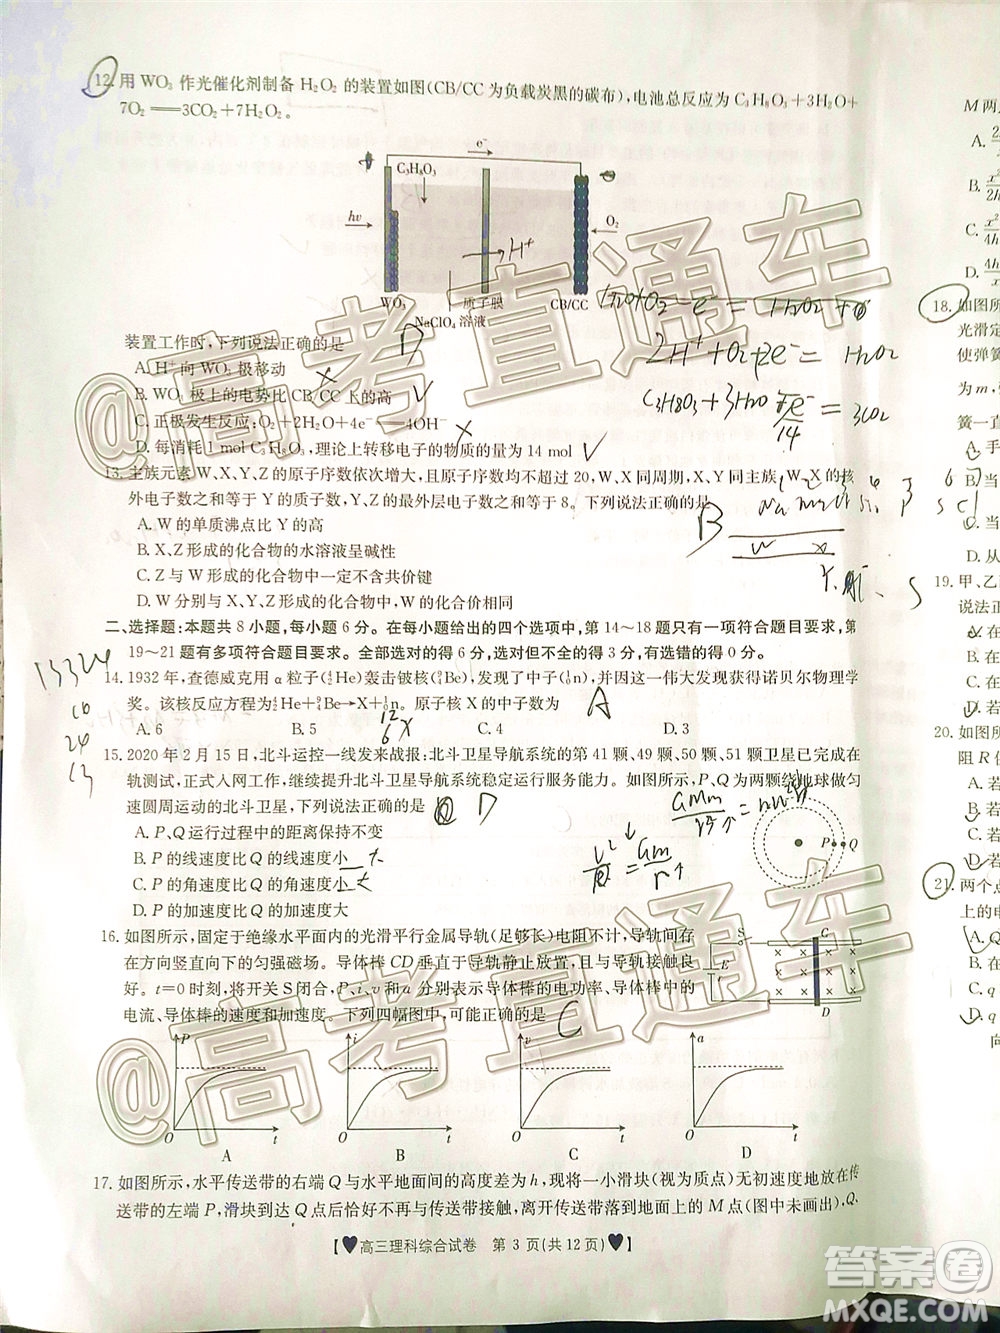 12. 用 WO₃ 作光催化剂制备 H₂O₂ 的装置如图(CB/CC 为负载炭黑的碳布),电池总反应为 C₃H₈O₃+3H₂O+
7O₂══3CO₂+7H₂O₂。
e⁻
C₃H₈O₃
hv
O₂
H⁺
WO₃
质子膜
CB/CC
NaClO₄ 溶液
2H⁺+O₂+2e⁻=H₂O₂
装置工作时,下列说法正确的是
D
A. H⁺向 WO₃ 极移动
B. WO₃ 极上的电势比 CB/CC 长的高
C. 正极发生反应:O₂+2H₂O+4e⁻══4OH⁻
D. 每消耗 1 mol C₃H₈O₃,理论上转移电子的物质的量为 14 mol
13. 主族元素 W、X、Y、Z 的原子序数依次增大,且原子序数均不超过 20,W、X 同周期,X、Z 同主族,W、X 的核
外电子数之和等于 Y 的质子数,X、Z 的最外层电子数之和等于 8。下列说法正确的是
B
A. W 的单质沸点比 Y 的高
B. X、Z 形成的化合物的水溶液呈碱性
C. Z 与 W 形成的化合物中一定不含共价键
D. W 分别与 X、Y、Z 形成的化合物中,W 的化合价相同
二、选择题:本题共 8 小题,每小题 6 分。在每小题给出的四个选项中,第 14～18 题只有一项符合题目要求,第
19～21 题有多项符合题目要求。全部选对的得 6 分,选对但不全的得 3 分,有选错的得 0 分。
14. 1932 年,查德威克用 α 粒子(⁴₂He)轰击铍核(⁹₄Be),发现了中子(¹₀n),因这一伟大发现获得诺贝尔物理学
奖。该核反应方程为⁴₂He+⁹₄Be→X+¹₀n。原子核 X 的中子数为
A
A. 6
B. 5
C. 4
D. 3
15. 2020 年 2 月 15 日,北斗运控一线发来战报:北斗卫星导航系统的第 41 颗、49 颗、50 颗、51 颗卫星已完成在
轨测试,正式入网工作,继续提升北斗卫星导航系统稳定运行服务能力。如图所示,P、Q 为两颗绕地球做匀
速圆周运动的北斗卫星,下列说法正确的是
D
A. P、Q 运行过程中的距离保持不变
B. P 的线速度比 Q 的线速度小
C. P 的角速度比 Q 的角速度小
D. P 的加速度比 Q 的加速度大
P
Q
16. 如图所示,固定于绝缘水平面内的光滑平行金属导轨(足够长)电阻不计,导轨间存
在方向竖直向下的匀强磁场。导体棒 CD 垂直于导轨静止放置,且与导轨接触良
好。t=0 时刻,将开关 S 闭合,P、i、v 和 a 分别表示导体棒的电功率、导体棒中的
电流、导体棒的速度和加速度。下列四幅图中,可能正确的是
C
S
C
E
D
P
O
t
A
i
O
t
B
v
O
t
C
a
O
t
D
17. 如图所示,水平传送带的右端 Q 与水平地面间的高度差为 h,现将一小滑块(视为质点)无初速度地放在传
送带的左端 P,滑块到达 Q 点后不再与传送带接触,离开传送带后落到地面上的 M 点(图中未画出),Q、
【♥高三理科综合试卷 第 3 页(共 12 页)♥】
M 两
18. 如图所
光滑定
使弹簧
为 m,
簧一直
A. 手
B. 当
C. 当
D. 从
19. 甲、乙
说法正
20. 如图所
阻 R
21. 两个点
上的电
@高考直通车
@高考直通车
答案圈
MXQE.COM